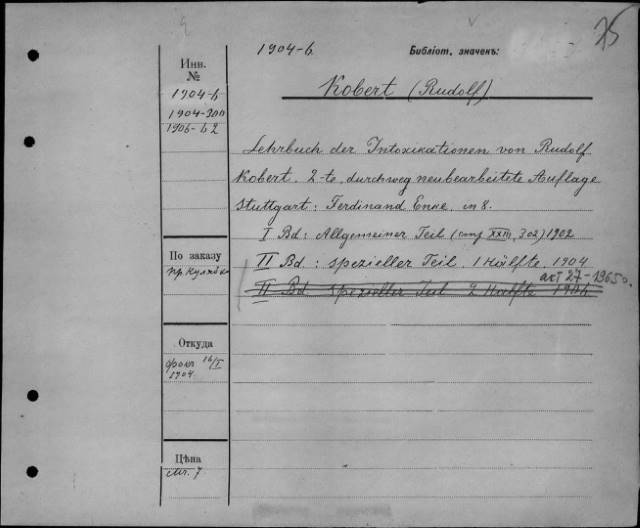 25
1904-6
Библіот. значекъ:
Инв.
№
1904-6
1904-300
1906-62
Kobert (Rudolf)
Lehrbuch der Intoxikationen von Rudolf
Kobert. 2-te, durchweg neubearbeitete Auflage
Stuttgart: Ferdinand Enke. in 8.
I Bd: Allgemeiner Teil (стр XXIII, 302) 1902
II Bd: spezieller Teil. 1 Hälfte. 1904
акт 27-1965г.
II Bd spezieller Teil 2 Haelfte 1906
По заказу
Откуда
16/I
1904.
Цѣна
Mr. 7